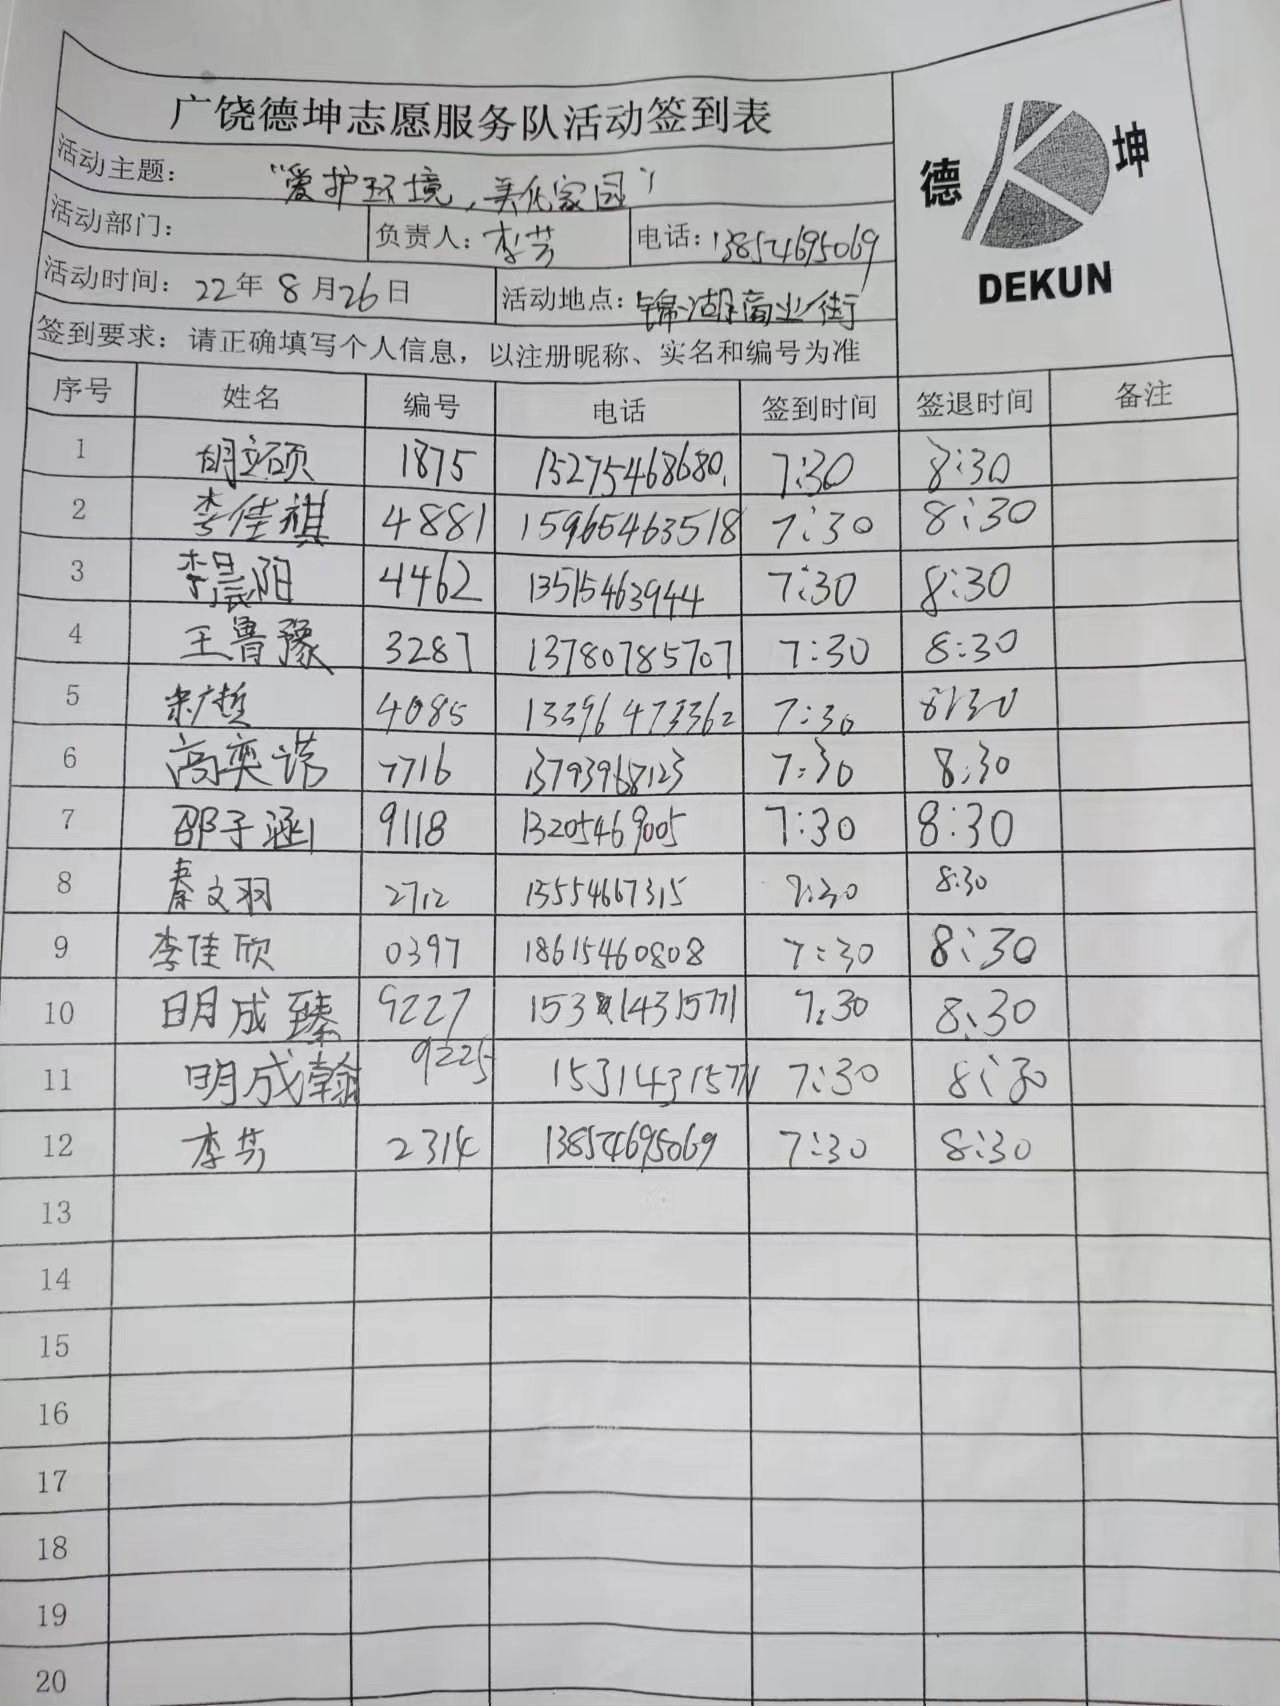 广饶德坤志愿服务队活动签到表
德 坤
DEKUN
活动主题： "爱护环境，美化家园"
活动部门： 负责人：李芳 电话：13854695069
活动时间：22年8月26日 活动地点：锦湖商业街
签到要求：请正确填写个人信息，以注册昵称、实名和编号为准
序号 姓名 编号 电话 签到时间 签退时间 备注
1 胡立硕 1875 15275468680. 7:30 8:30
2 李佳祺 4881 15965463518 7:30 8:30
3 李晨阳 4462 13515463944 7:30 8:30
4 王鲁豫 3287 13780785707 7:30 8:30
5 4085 13396473362 7:30 8:30
6 高奕诺 7716 13793968123 7:30 8:30
7 邵子涵 9118 13205469005 7:30 8:30
8 秦文羽 2712 13554667315 7:30 8:30
9 李佳欣 0397 18615460808 7:30 8:30
10 明成臻 9227 15314315771 7:30 8:30
11 明成翰 9225 15314315771 7:30 8:30
12 李芳 2314 13854695069 7:30 8:30
13
14
15
16
17
18
19
20